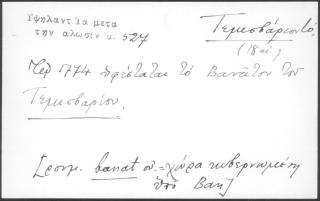 Υψηλαντ Τα μετα
την αλωσιν σ. 527
Τεμεσβάριον τό,
(18 αἰ)
1774 ὑφίσταται τό Βανᾶτον τοῦ
Τεμεσβαρίου.
[ρουμ. banat οὐ. = χώρα κυβερνωμένη
ὑπό Βαν]